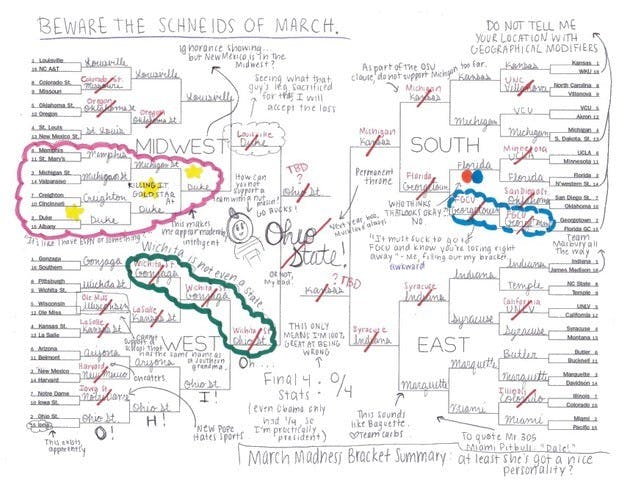 BEWARE THE SCHNEIDS OF MARCH.
DO NOT TELL ME
YOUR LOCATION WITH
GEOGRAPHICAL MODIFIERS
Ignorance showing...
but New Mexico is in the
Midwest?
Seeing what that
guy's leg sacrificed
for that, I will
accept the loss
As part of the OSU
clause, do not support Michigan too far.
MIDWEST
SOUTH
WEST
EAST
Louisville
NC A&T
Colorado St.
Missouri
Oklahoma St.
Oregon
St. Louis
New Mexico St.
Memphis
St. Mary's
Michigan St.
Valparaiso
Creighton
Cincinnati
Duke
Albany
Louisville
Colorado St.
Missouri
Oregon
Oklahoma St
St Louis
Memphis
Michigan St
Creighton
Duke
Louisville
Oregon
Oklahoma St
Michigan St
Duke
Louisville
Duke
Louisville
Duke
KILLING IT
GOLD STAR
This makes
me
intelligent
It's like I have ESPN or something
How can you not
support a
team with a nut
mascot?
GO BUCKS!
TBD
?
Ohio St
Ohio
State!
OR NOT,
my bad
?
TBD
Kansas
Permanent
throne
Next year too,
Mulattos always!
WHO THINKS
THAT LOOKS OKAY?
NO
Kansas
WKU
North Carolina
Villanova
VCU
Akron
Michigan
S. Dakota, St.
UCLA
Minnesota
Florida
N'western St.
San Diego St.
Oklahoma
Georgetown
Florida GC
Kansas
UNC
Villanova
VCU
Michigan
Minnesota
UCLA
Florida
San Diego St
Oklahoma
FGCU
Georgetown
Kansas
Michigan
Florida
FGCU
Georgetown
Michigan
Kansas
Florida
Georgetown
Michigan
Kansas
"It must suck to go to
FGCU and know you're losing right
away" - Me, filling out my bracket.
awkward
Marbury all
the way
Gonzaga
Southern
Pittsburgh
Wichita St.
Wisconsin
Ole Miss
Kansas St.
La Salle
Arizona
Belmont
New Mexico
Harvard
Notre Dame
Iowa St.
Ohio St.
Iona
Gonzaga
Wichita St
Ole Miss
Wisconsin
LaSalle
Kansas St
Arizona
Harvard
New Mexico
Iowa St
Notre Dame
Ohio St
Wichita St
Gonzaga
LaSalle
Kansas St
Arizona
Ohio St
Wichita St
Gonzaga
Ohio St
Wichita St
Ohio St
Wichita is not even a state
cannot
support a school that
has the same name as
a southern grandma.
cheaters
New Pope
Hates Sports
This exists,
apparently
O!
H!
I!
Oh...
THIS ONLY
MEANS I'M 100%
GREAT AT BEING
WRONG
Final 4: 0/4
Stats:
(even Obama only
had 1/4, so
I'm practically
president)
Indiana
James Madison
NC State
Temple
UNLV
California
Syracuse
Montana
Butler
Bucknell
Marquette
Davidson
Illinois
Colorado
Miami
Pacific
Indiana
Temple
California
UNLV
Syracuse
Butler
Marquette
Illinois
Colorado
Miami
Indiana
Syracuse
Marquette
Miami
Syracuse
Indiana
Marquette
Syracuse
Indiana
This sounds
like Baguette.
Team carbs
To quote Mr 305
Miami Pitbull: "Dale!"
March Madness Bracket Summary: at least she's got a nice
personality?